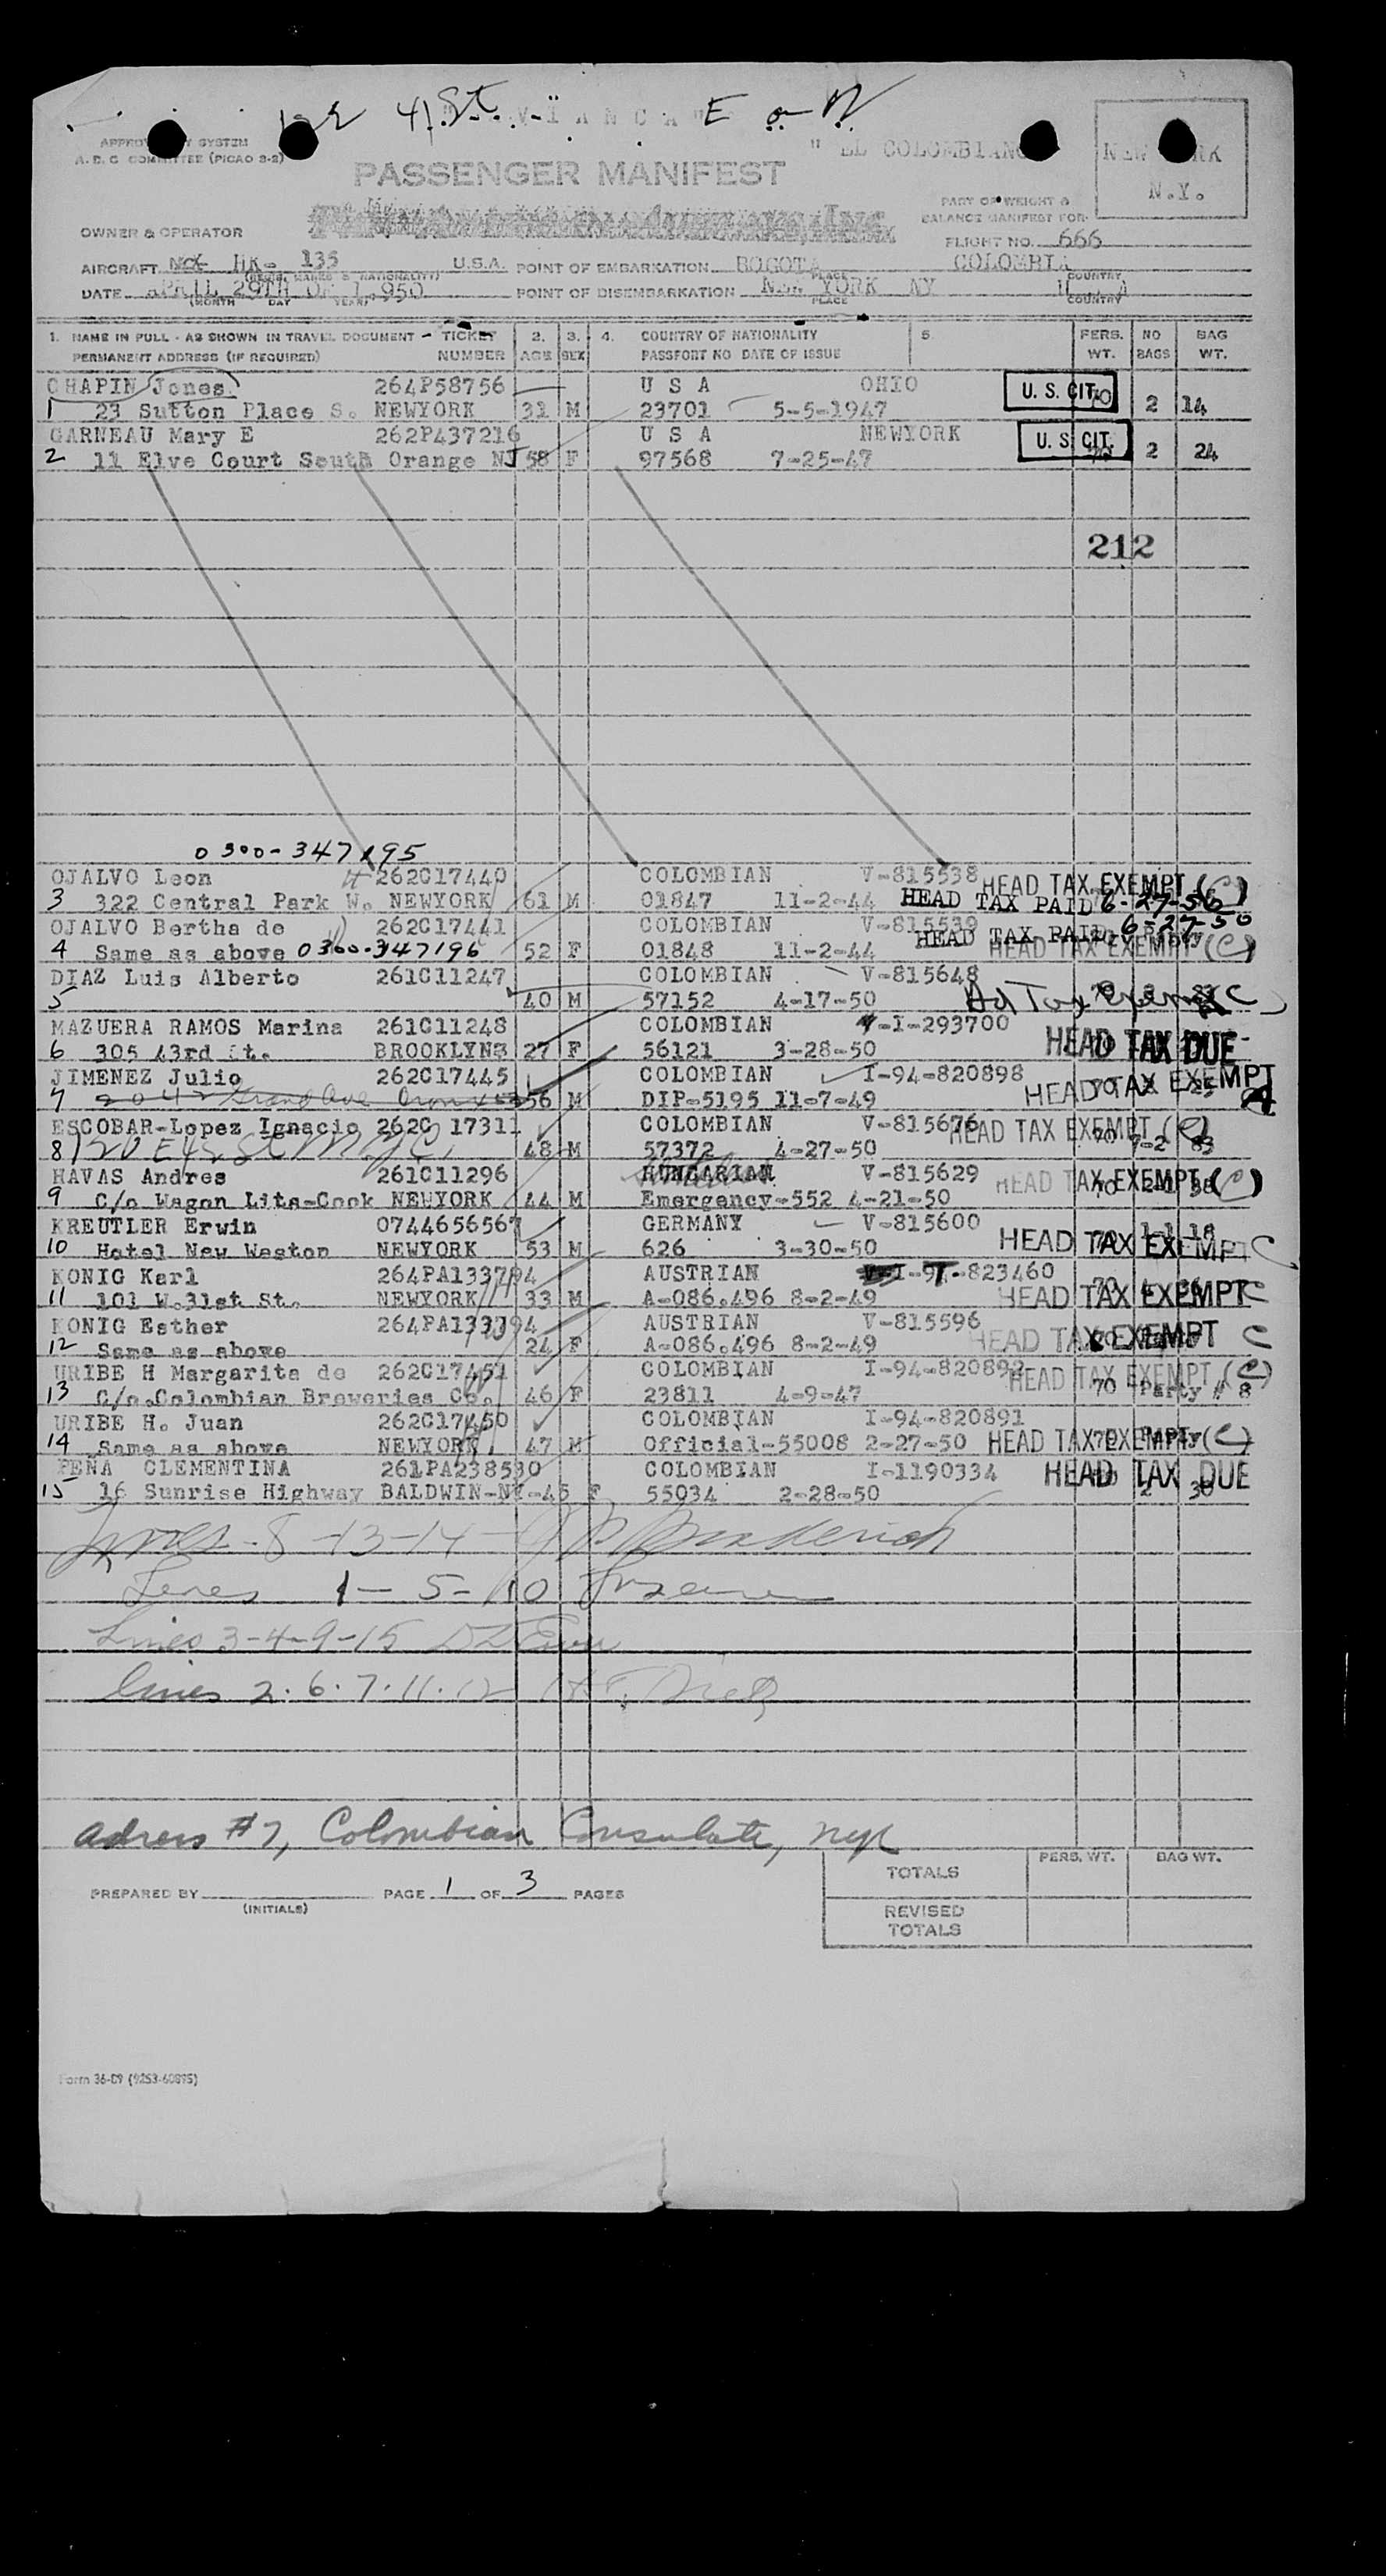 41 St. E or W
" A V I A N C A "
APPROV SYSTEM
A.D.C COMMITTEE (PICAO 2-2)
" EL COLOMBIANO
NEW YORK
N.Y.
PASSENGER MANIFEST
PART OF WEIGHT &
BALANCE MANIFEST FOR
OWNER & OPERATOR
FLIGHT NO. 666
AIRCRAFT HK- 135 U.S.A. POINT OF EMBARKATION BOGOTA COLOMBIA
(REGIS. MARKS & NATIONALITY) PLACE COUNTRY
DATE APRIL 29TH OF 1.950 POINT OF DISEMBARKATION NEW YORK NY U A
(MONTH DAY YEAR) PLACE COUNTRY
1. NAME IN FULL - AS SHOWN IN TRAVEL DOCUMENT - TICKET 2. 3. 4. COUNTRY OF NATIONALITY 5. PERS. NO BAG
PERMANENT ADDRESS (IF REQUIRED) NUMBER AGE SEX PASSPORT NO DATE OF ISSUE WT. BAGS WT.
CHAPIN Jones 264P58756 U S A OHIO U. S. CIT.
1 23 Sutton Place S. NEWYORK 31 M 23701 5-5-1947 70 2 14
GARNEAU Mary E 262P437216 U S A NEWYORK U. S. CIT.
2 11 Elve Court South Orange NJ 58 F 97568 7-25-47 2 24
212
0300-347195
OJALVO Leon 262C17440 COLOMBIAN V-815538 HEAD TAX EXEMPT (C)
3 322 Central Park W. NEWYORK 61 M 01847 11-2-44 HEAD TAX PAID 6-27-50
OJALVO Bertha de 262C17441 COLOMBIAN V-815539 HEAD TAX PAID 6-27-50
4 Same as above 0300-347196 52 F 01848 11-2-44 HEAD TAX EXEMPT (C)
DIAZ Luis Alberto 261C11247 COLOMBIAN V-815648
5 40 M 57152 4-17-50 Hd Tax Exempt C
MAZUERA RAMOS Marina 261C11248 COLOMBIAN I-293700
6 305 43rd St. BROOKLYN 27 F 56121 3-28-50 HEAD TAX DUE
JIMENEZ Julio 262C17445 COLOMBIAN I-94-820898 HEAD TAX EXEMPT
7 2042 Grand Ave 56 M DIP-5195 11-7-49 A
ESCOBAR-Lopez Ignacio 262C 17311 COLOMBIAN V-815676 HEAD TAX EXEMPT (C)
8 48 M 57372 4-27-50 70 7-2 83
HAVAS Andres 261C11296 HUNGARIAN V-815629 HEAD TAX EXEMPT (C)
9 C/o Wagon Lits-Cook NEWYORK 44 M Emergency-552 4-21-50
KREUTLER Erwin 0744656567 GERMANY V-815600
10 Hotel New Weston NEWYORK 53 M 626 3-30-50 HEAD TAX EXEMPT C
KONIG Karl 264PA133794 AUSTRIAN I-94-823460
11 101 W.31st St. NEWYORK 33 M A-086.496 8-2-49 HEAD TAX EXEMPT C
KONIG Esther 264PA133794 AUSTRIAN V-815596
12 Same as above 24 F A-086.496 8-2-49 HEAD TAX EXEMPT C
URIBE H Margarita de 262C17451 COLOMBIAN I-94-820892 HEAD TAX EXEMPT (C)
13 C/o.Colombian Breweries Co. 46 F 23811 4-9-47 70 Party # 8
URIBE H. Juan 262C17450 COLOMBIAN I-94-820891
14 Same as above NEWYORK 47 M Official-55008 2-27-50 HEAD TAX EXEMPT (C)
PEÑA CLEMENTINA 261PA238530 COLOMBIAN I-1190334 HEAD TAX DUE
15 16 Sunrise Highway BALDWIN-NY-45 F 55034 2-28-50 2 30
Lines - 8 - 13 - 14 -
Lines 1 - 5 - 10
Lines 3-4-9-15
lines 2. 6. 7. 11. 12
adress #7, Colombian Consulate, nyc
TOTALS PERS. WT. BAG WT.
PREPARED BY PAGE 1 OF 3 PAGES
(INITIALS)
REVISED
TOTALS
Form 36-D9 (9253-60895)